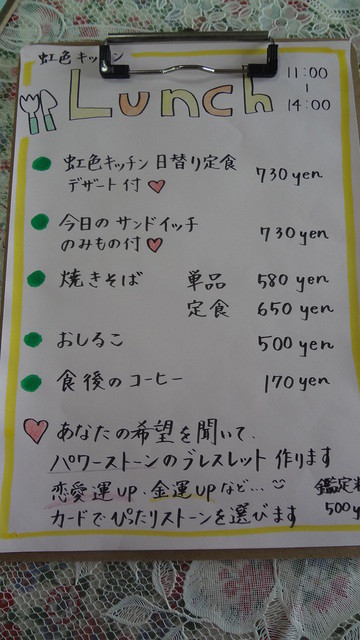 虹色キッチン
Lunch
11:00
-
14:00
虹色キッチン 日替り定食 730yen
デザート付♥
今日の サンドイッチ 730yen
のみもの付♥
焼きそば 単品 580 yen
定食 650 yen
おしるこ 500yen
食後の コーヒー 170 yen
♥ あなたの希望を聞いて、
パワーストーンのブレスレット 作ります
恋愛運UP・金運UPなど…
カードでぴたりストーンを選びます
鑑定料
500y